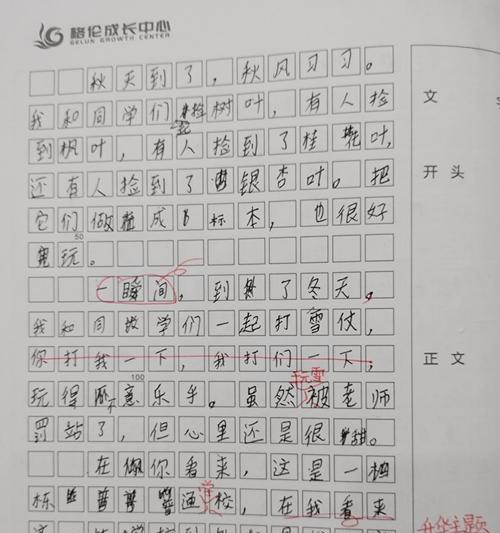 格伦成长中心
GELUN GROWTH CENTER
秋天到了，秋风习习。
我和同学们捡树叶，有人捡
文
到枫叶，有人捡到了桂花叶，
还有人捡到了银杏叶。把
开头
它们做成标本，也很好
50
玩。
一瞬间，到了冬天，
我和同学们一起打雪仗，
你打我一下，我打们一下，
正文
玩雪
100
玩得不意乐乎。虽然被老师
罚站了，但心里还是很甜。
在你看来，这是一
栋普普通校，在我看来
升华主题